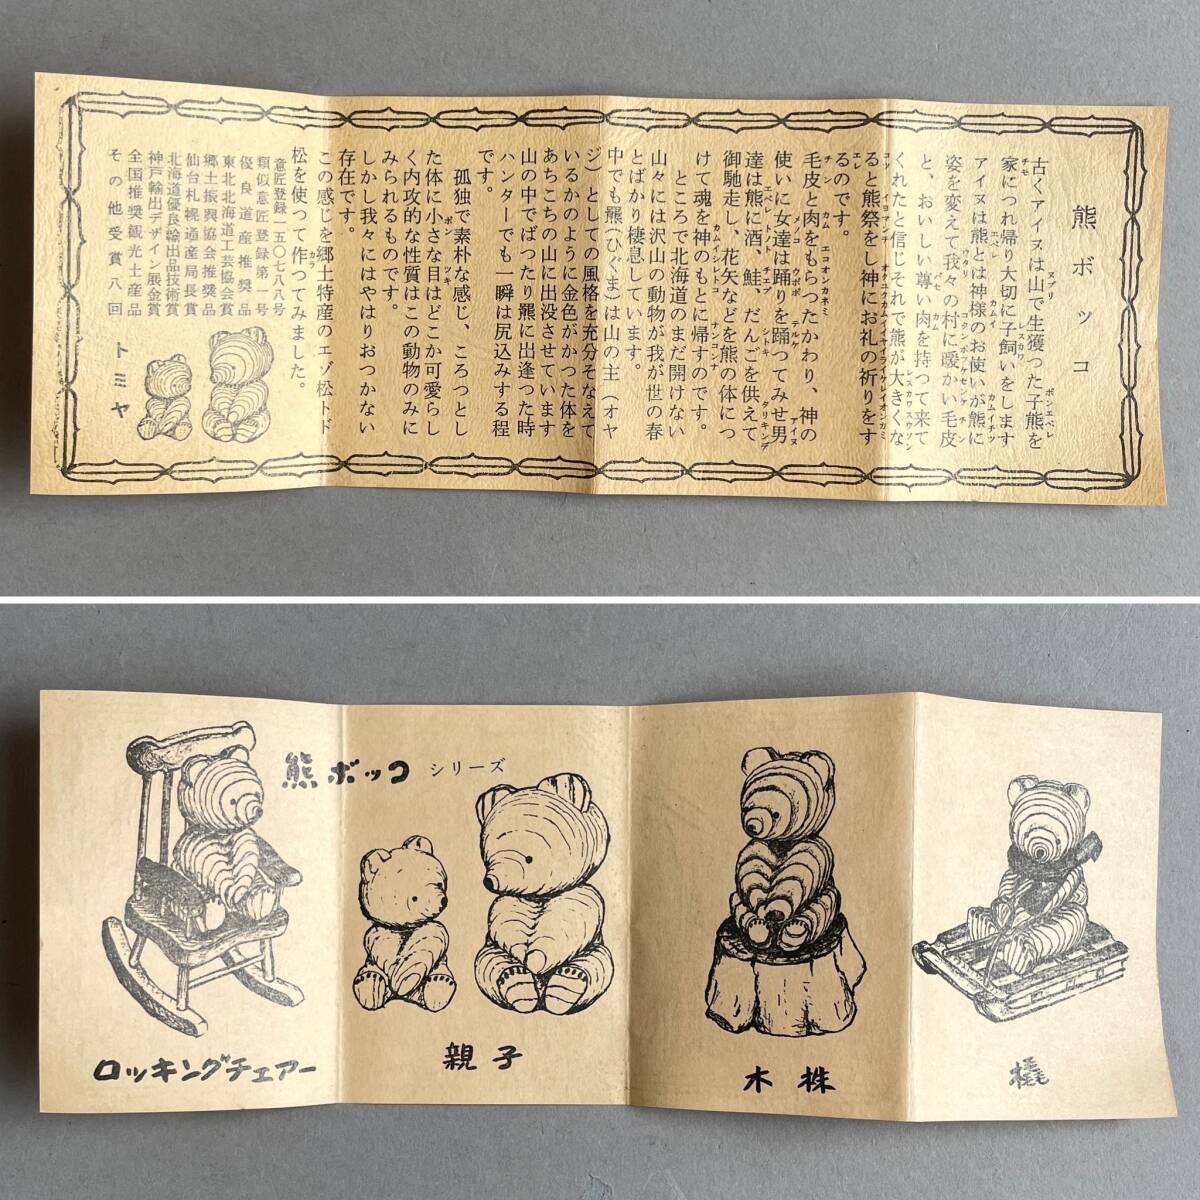 熊ボッコ
古くアイヌは山で生獲った子熊を
家につれ帰り大切に子飼いをします
アイヌは熊とは神様のお使いが熊に
姿を変えて我々の村に暖かい毛皮
と、おいしい尊い肉を持つて来て
くれたと信じそれで熊が大きくな
ると熊祭をし神にお礼の祈りをす
るのです。
毛皮と肉をもらつたかわり、神の
使いに女達は踊りを踊つてみせ男
達は熊に酒、鮭、だんごを供えて
御馳走し、花矢などを熊の体につ
けて魂を神のもとに帰すのです。
ところで北海道のまだ開けない
山々には沢山の動物が我が世の春
とばかり棲息しています。
中でも羆(ひぐま)は山の主(オヤ
ジ)としての風格を充分そなえて
いるかのように金色がかつた体を
あちこちの山に出没させています
山の中でばつたり羆に出逢つた時
ハンターでも一瞬は尻込みする程
です。
孤独で素朴な感じ、ころつとし
た体に小さな目はどこか可愛らし
く内攻的な性質はこの動物のみに
みられるものです。
しかし我々にはやはりおつかない
存在です。
この感じを郷土特産のエゾ松トド
松を使つて作つてみました。
意匠登録一五〇七八八号
類似意匠登録第一号
優良道産推奨品
東北北海道工芸協会賞
郷土振興協会推奨品
仙台札幌通産局長賞
北海道優良輸出品技術賞
神戸輸出デザイン展金賞
全国推奨観光土産品
その他受賞八回
トミヤ
熊ボッコ シリーズ
ロッキングチェアー
親子
木株
橇